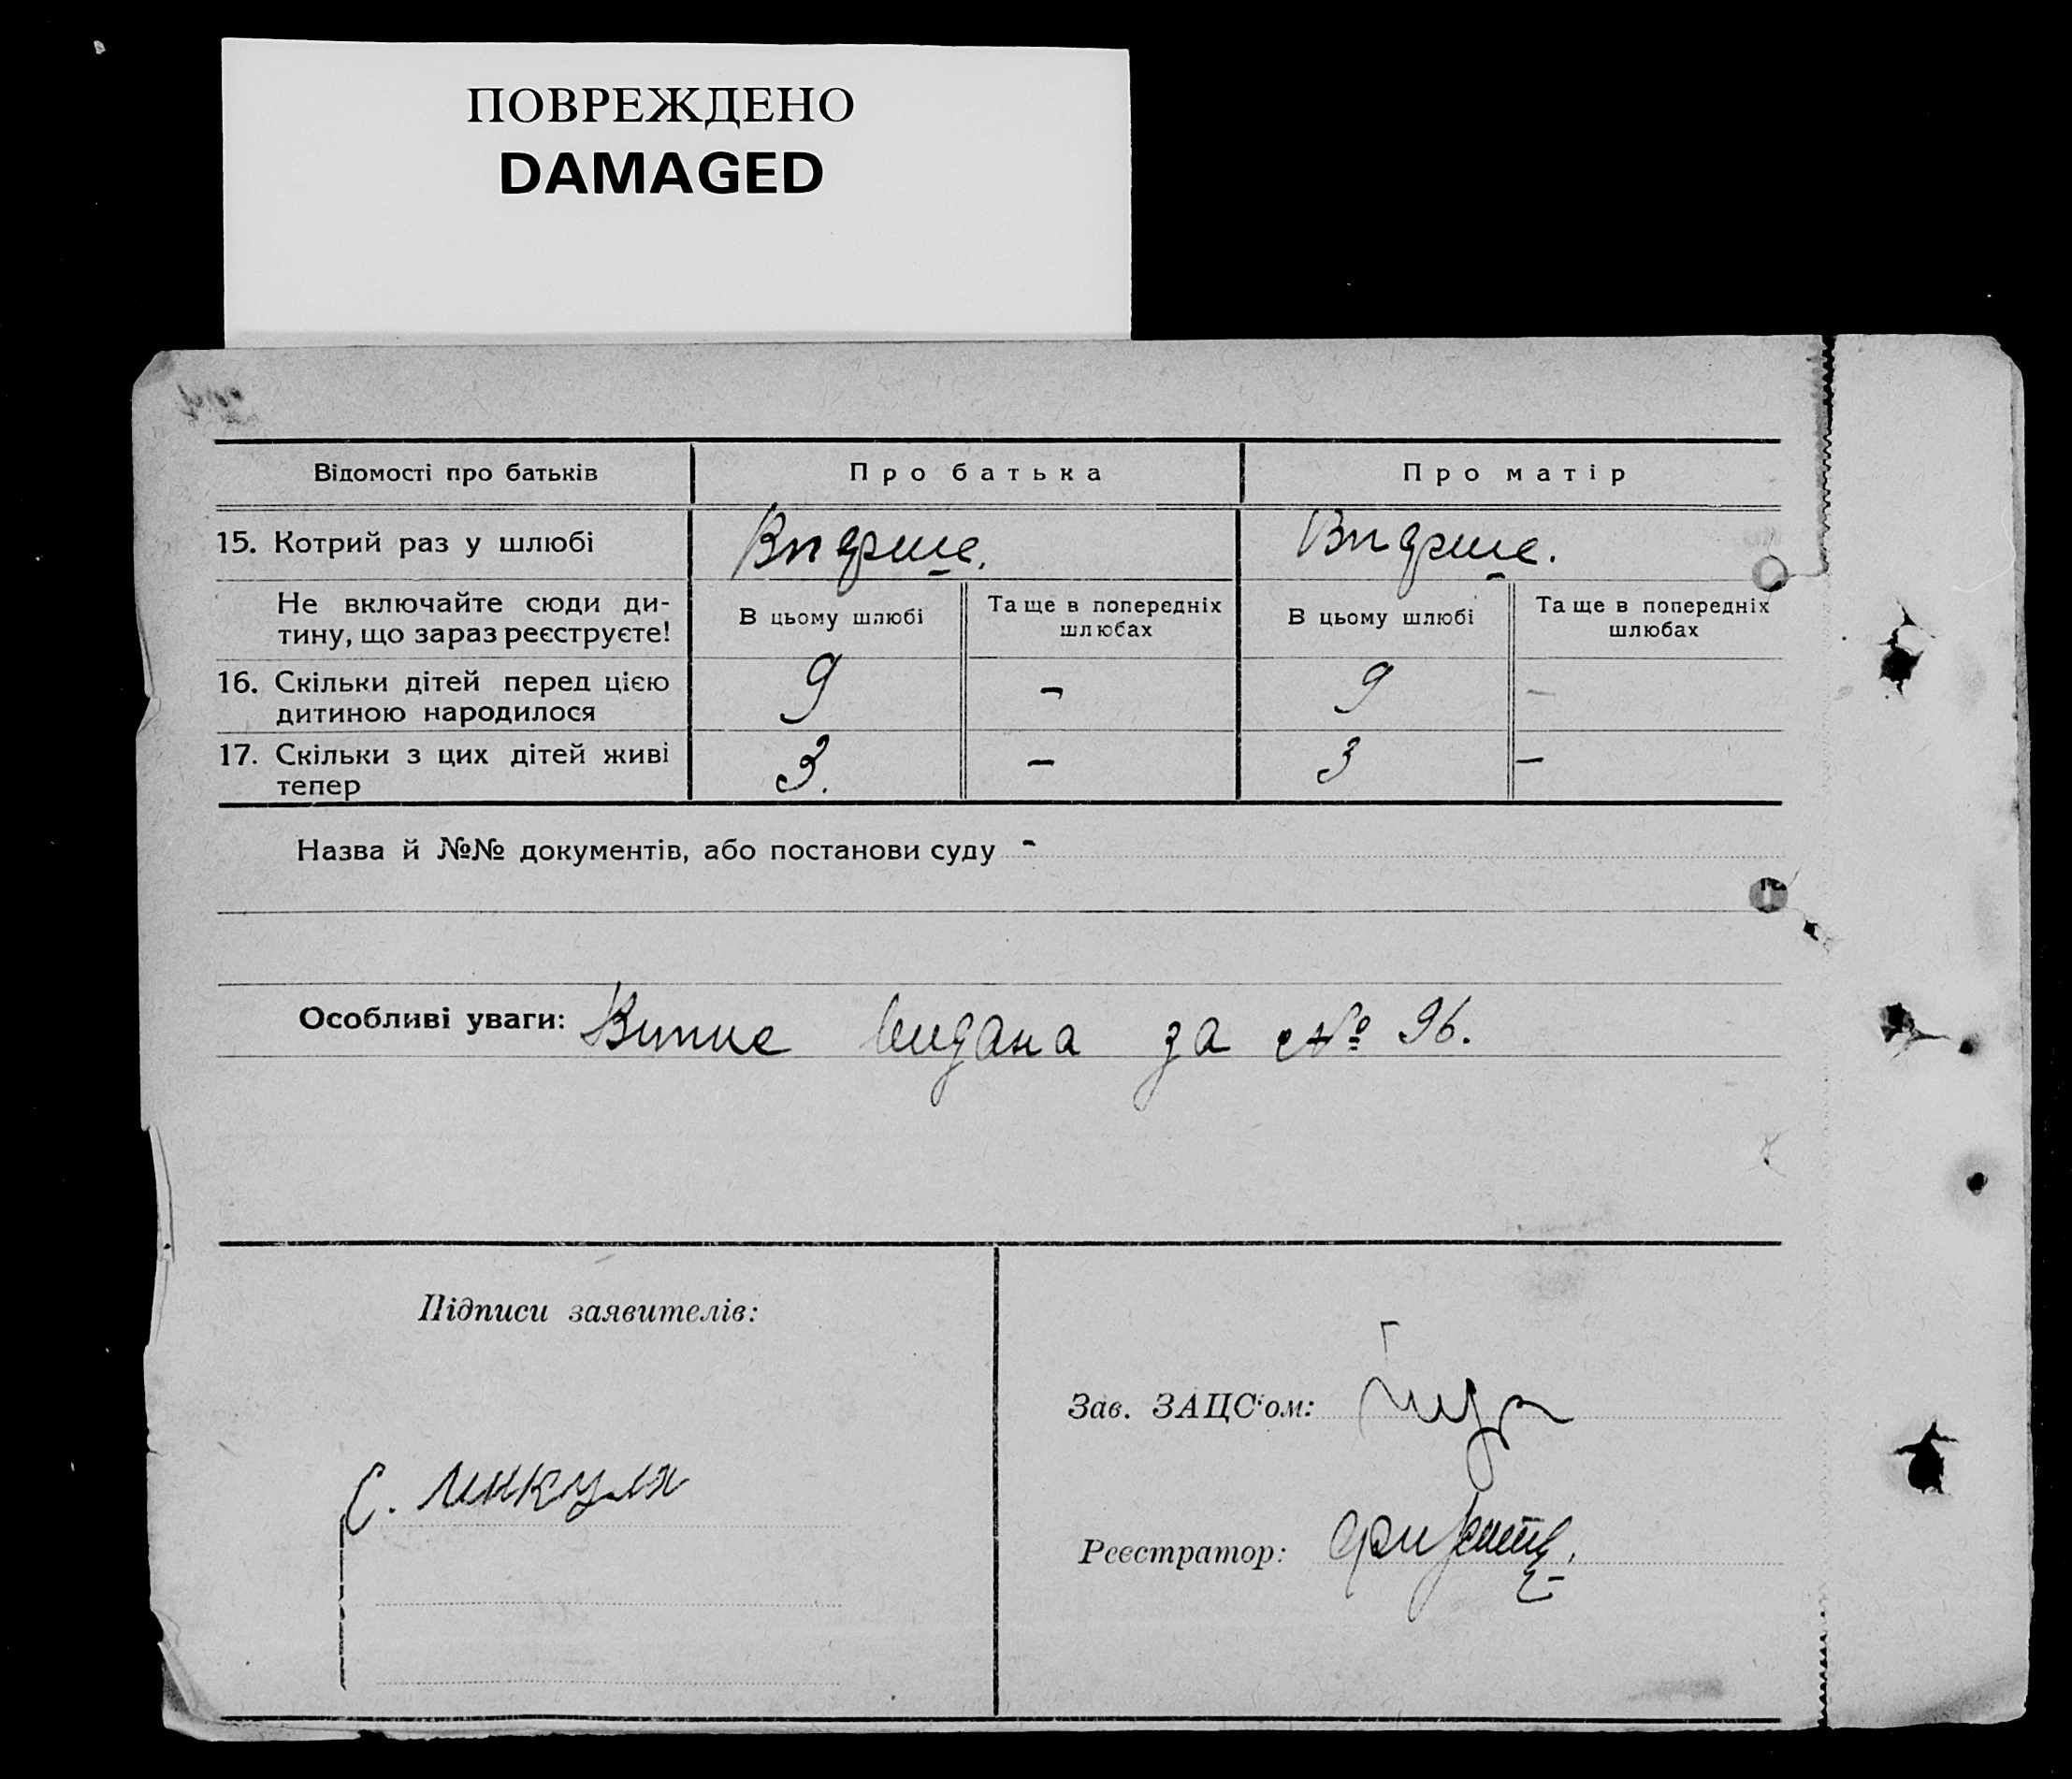 ПОВРЕЖДЕНО
DAMAGED
Відомості про батьків Про батька Про матір
15. Котрий раз у шлюбі Впдрше. Впдрше.
Не включайте сюди ди-
тину, що зараз реєструєте!
В цьому шлюбі Та ще в попередніх шлюбах В цьому шлюбі Та ще в попередніх шлюбах
16. Скільки дітей перед цією
дитиною народилося 9 - 9 -
17. Скільки з цих дітей живі
тепер 3. - 3 -
Назва й №№ документів, або постанови суду -
Особливі уваги: Випис видана за № 96.
Підписи заявителів:
Зав. ЗАЦС'ом:
С. Микуля
Реєстратор: